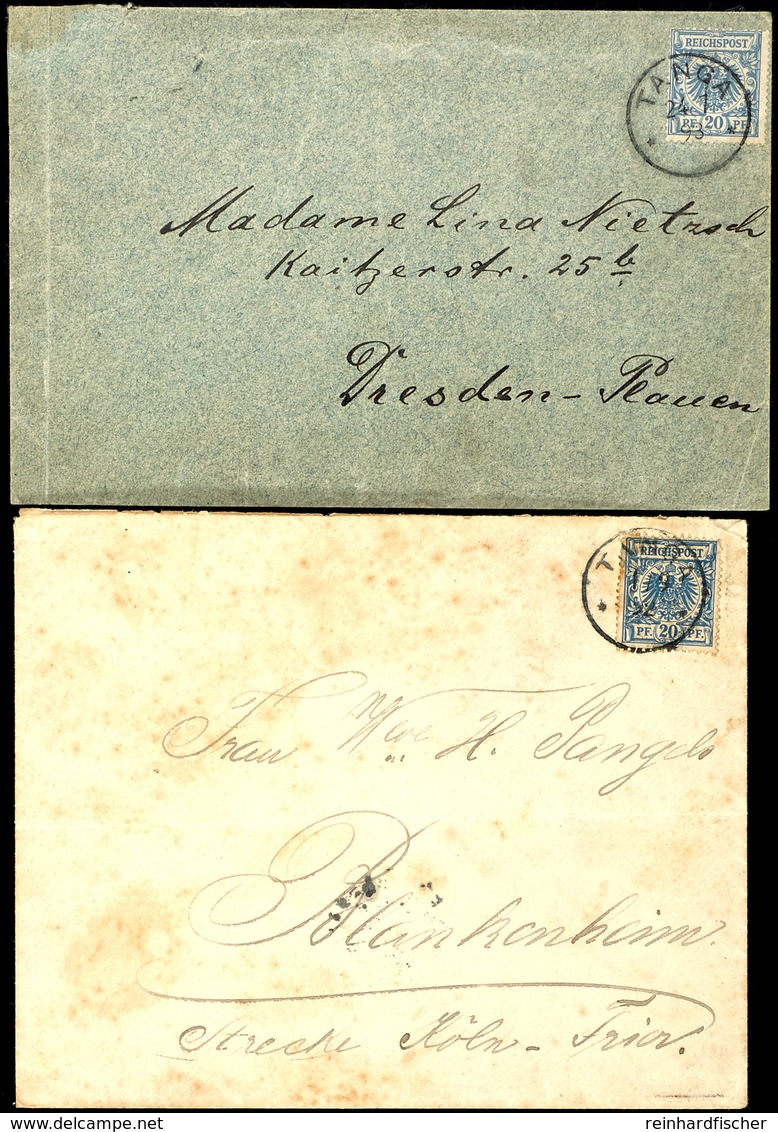 REICHSPOST
TANGA
24 1
93
PF. 20 PF.
Madame Lina Nietzsch
Kaitzerstr. 25 b
Dresden - Plauen
REICHSPOST
TANGA
1 9
PF. 20 PF.
Frau Wwe H. Pangels
Blankenheim.
Strecke Köln - Trier.
reinhardfischer